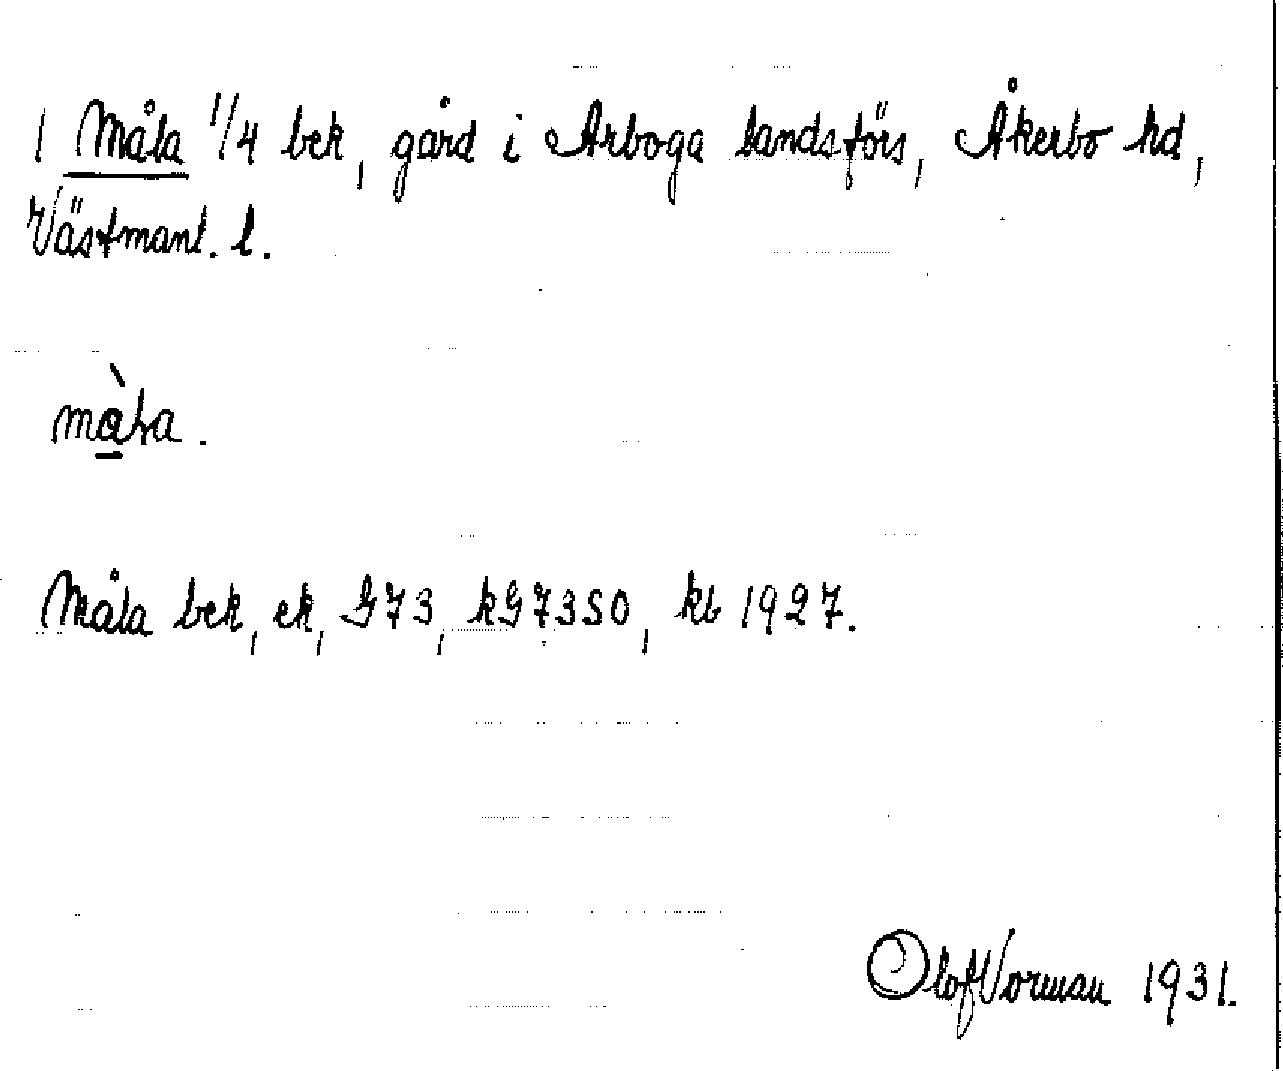 1 Måla 1/4 bek, gård i Arboga landsförs, Åkerbo hd,
Västmanl. l.
mà̲la.
Måla bek, ek, G73, kG73SO, kb 1927.
Olof Vorman 1931.